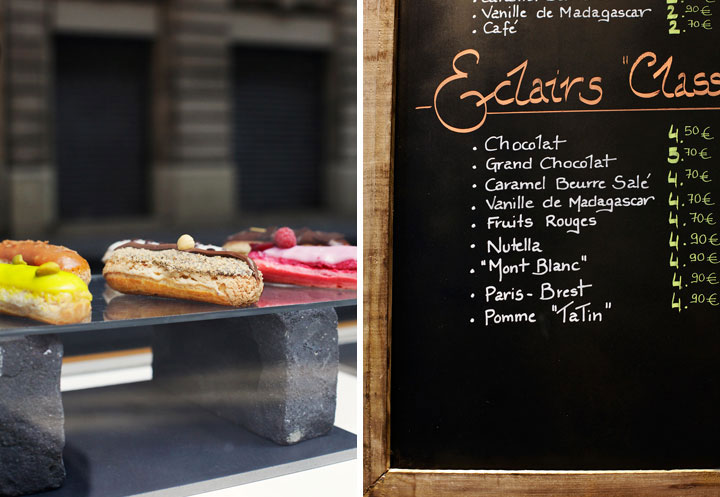 Vanille de Madagascar 2.90€
Café 2.70€
Eclairs "Class
Chocolat 4.50€
Grand Chocolat 5.70€
Caramel Beurre Salé 4.70€
Vanille de Madagascar 4.70€
Fruits Rouges 4.70€
Nutella 4.90€
"Mont Blanc" 4.90€
Paris-Brest 4.90€
Pomme "TaTin" 4.90€